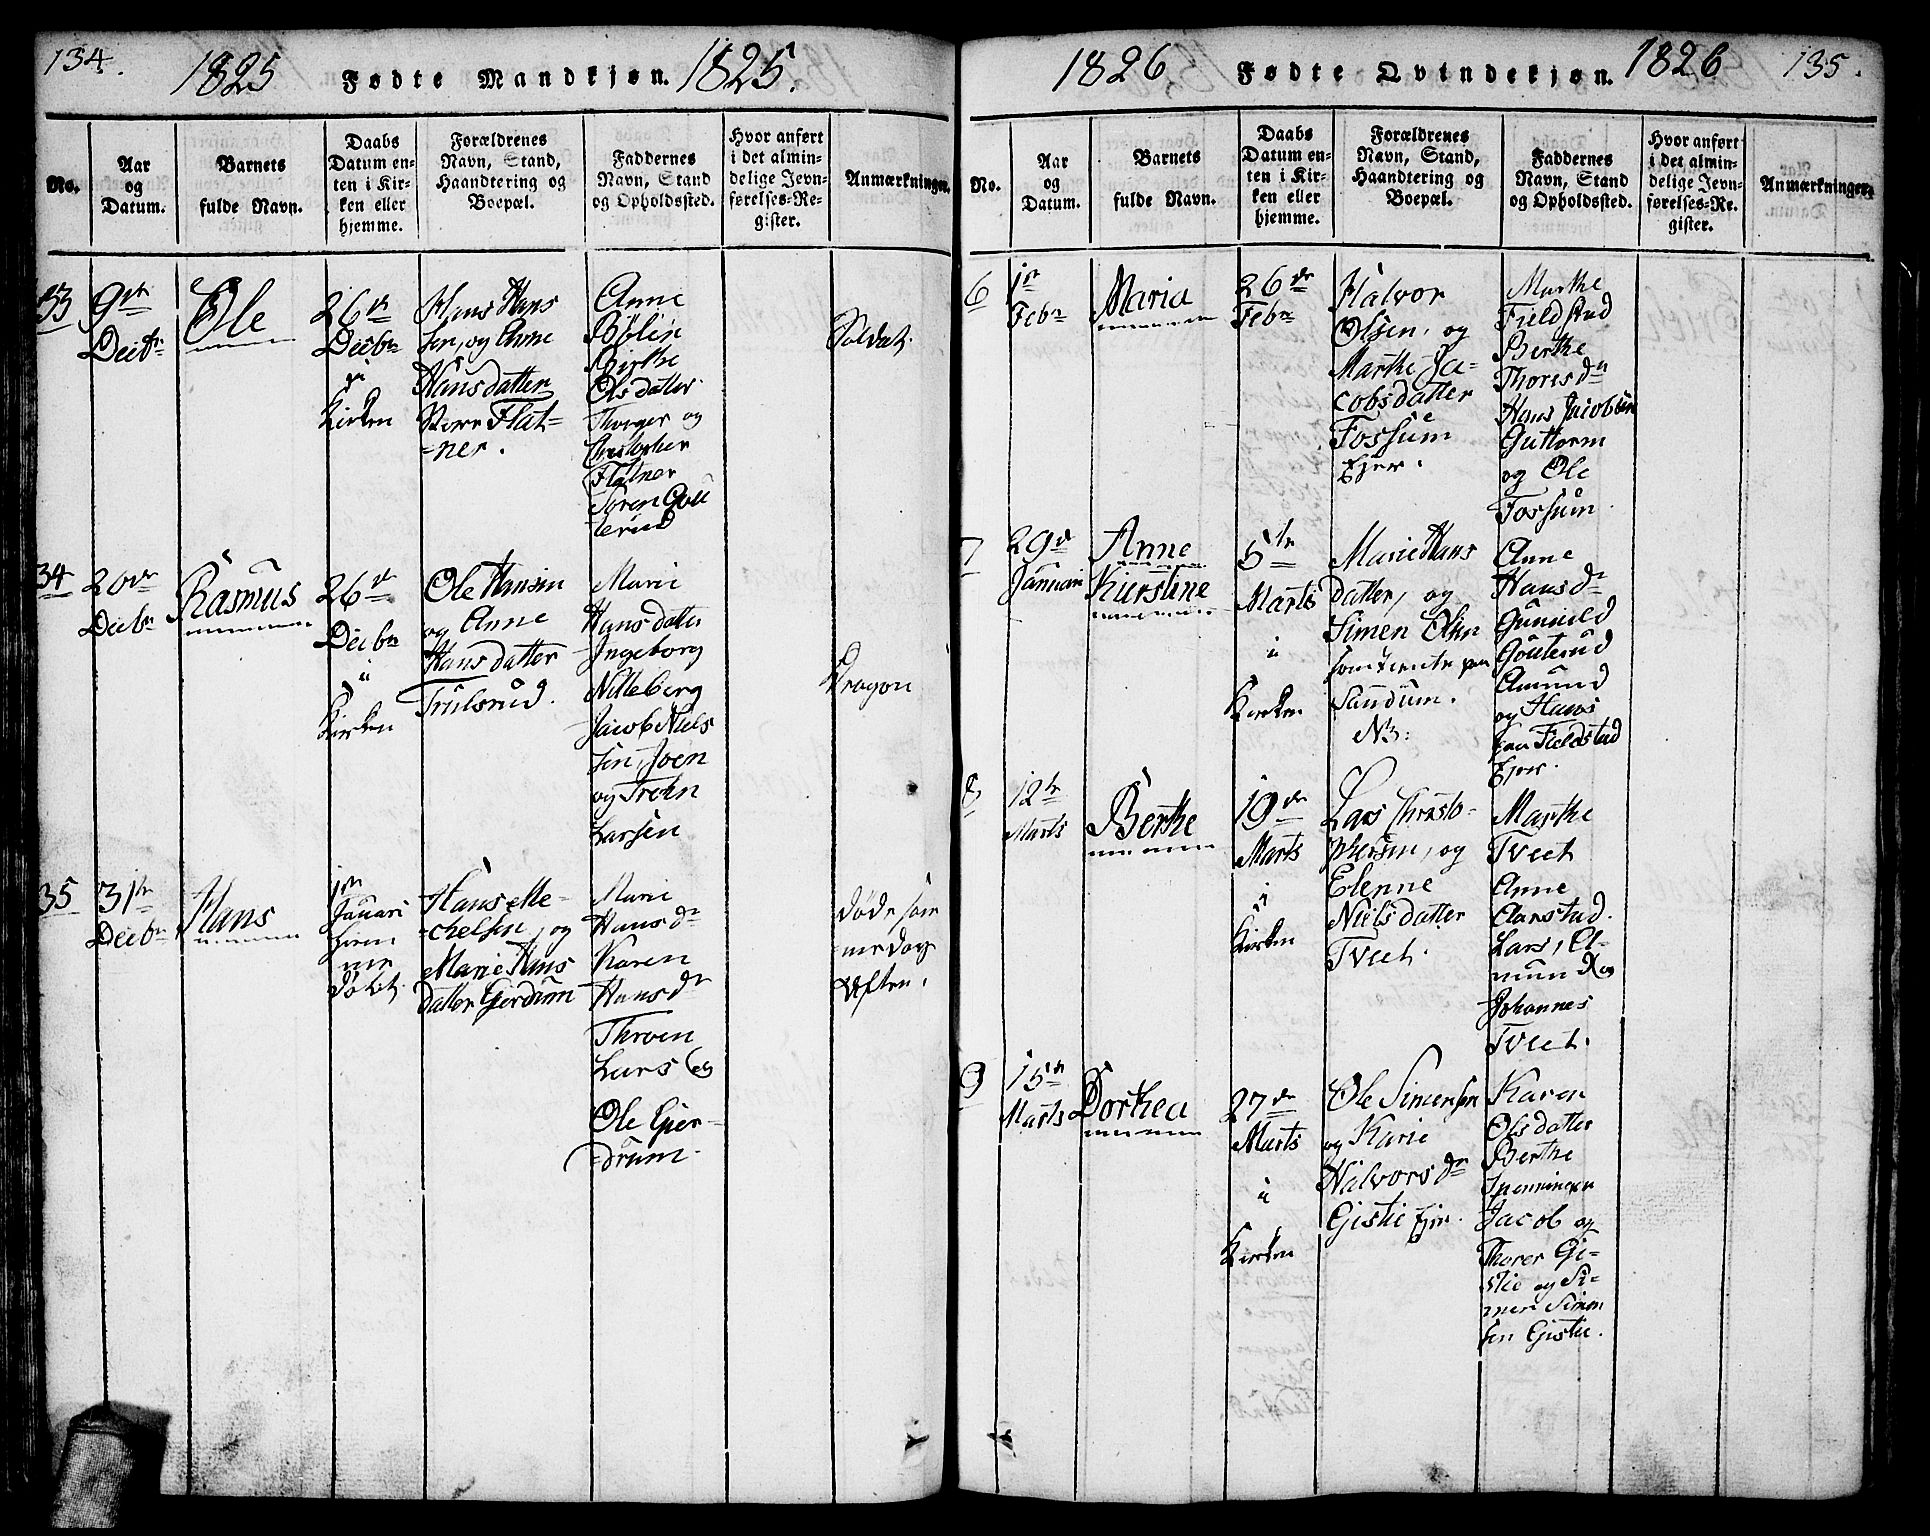 134.
1825 Fødte Mandkjøn. 1825.
No.
Aar
og
Datum.
Barnets
fulde Navn.
Daabs
Datum en-
ten i Kir-
ken eller
hjemme.
Forældrenes
Navn, Stand,
Haandtering og
Boepæl.
Faddernes
Navn, Stand
og Opholdssted.
Hvor anført
i det almin-
delige Jevn-
førelses-Re-
gister.
Anmærkninger.
33
9de
Decbr
Ole
26de
Decbr
i
Kirken
Hans Hans
sen, og Anne
Hansdatter
Flat-
-ner.
Anne
Bölin
Birthe
Olsdatter
Thorger og
Christopher
Flatner
Soren Goll
lerud
Soldat.
34
20de
Decbr
Rasmus
26de
Decbr
i
Kirken
Ole Hansen
og Anne
Hansdatter
Trulsrud.
Marie
Hansdatter
Ingeborg
Nitteberg
Jacob Niels
sen, Joen
og Troen
Larsen
Dragon
35
31te
Decbr
Hans
1ste
Januari
hiem
me
døbt.
Hans Me-
-chelsen, og
Marie Hans
datter Gjerdrum
Marie
Hansdr
Karen
Hansdr
Throen
Lars og
Ole Gjer-
-drum.
døde sam
me dags
Aften.
1826 Fødte Qvindekjøn. 1826
135.
No.
Aar
og
Datum.
Barnets
fulde Navn.
Daabs
Datum en-
ten i Kir-
ken eller
hjemme.
Forældrenes
Navn, Stand,
Haandtering og
Boepæl.
Faddernes
Navn, Stand
og Opholdssted.
Hvor anført
i det almin-
delige Jevn-
førelses-Re-
gister.
Anmærkninger.
6
1ste
Febr
Maria
26de
Febr
Halvor
Olsen, og
Marthe Ja-
cobsdatter
Fossum
Ejer.
Marthe
Fieldstad
Berthe
Thoresdr
Hans Jacobsen
Guttorm
og Ole
Fossum.
7
29de
Januari
Anne
Kirstine
5te
Marts
i
Kirken
Marie Hans
datter, og
Simen Olsen
paa
Sandum.
N3:
Anne
Hansdr
Gunild
Gouterud
Amund
og Hans
paa Fieldstad
Ejer.
8
12te
Marts
Berthe
19de
Marts
i
Kirken
Lars Christo-
phersen, og
Elenne
Nielsdatter
Tveet.
Marthe
Tveet
Anne
Aarstad.
Lars, A-
mund og
Johannes
Tveet.
9
15de
Marts
Dorthea
27de
Marts
i
Kirken
Ole Simensen
og Karie
Halvorsdr
Gistie Ejer.
Karen
Olsdatter
Berthe
Jacob og
Thorer Gi-
stie og Si-
men Simen
sen Gistie.